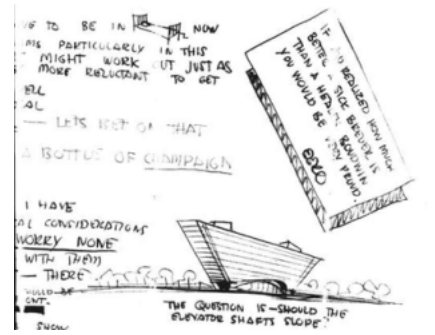 TO BE IN NOW
MS PARTICULARLY IN THIS
MIGHT WORK OUT JUST AS
MORE RELUCTANT TO GET
ELL
AL
— LETS BET ON THAT
A BOTTLE OF CHAMPAIGN
I HAVE
AL CONSIDERATIONS
WORRY NONE
WITH THEM
— THERE
WOULD BE
SHOW
IF YOU REALIZED HOW MUCH
BETTER A SICK BREUER IS
THAN A
YOU WOULD BE VERY PROUD.
EERO
THE QUESTION IS — SHOULD THE
ELEVATOR SHAFTS SLOPE?